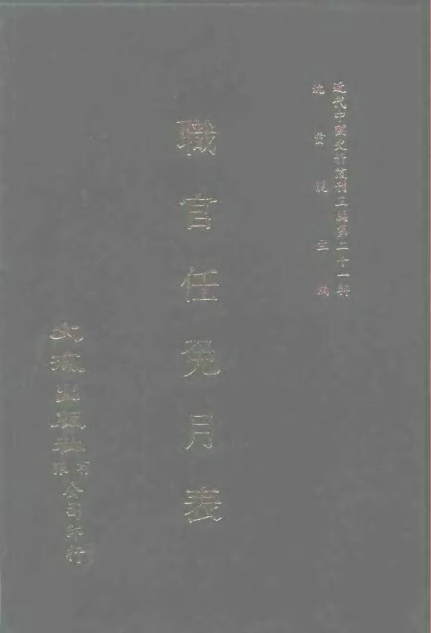 近代中國史料叢刊三編第二十一輯
沈雲龍主編
職官任免月表
文海出版社有限公司印行